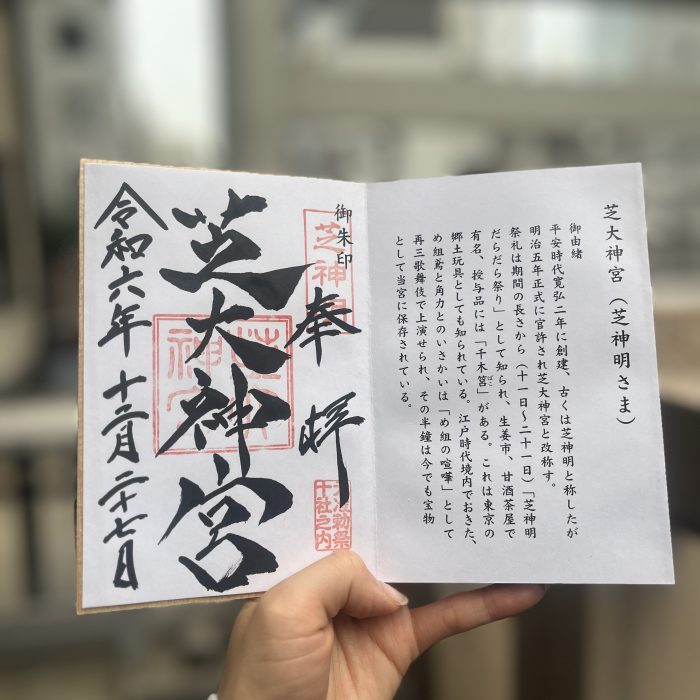 芝大神宮(芝神明さま)
御由緒
平安時代寛弘二年に創建、古くは芝神明と称したが
明治五年正式に官許され芝大神宮と改称す。
祭礼は期間の長さから(十一日〜二十一日)「芝神明
だらだら祭り」として知られ、生姜市、甘酒茶屋で
有名、授与品には「千木筥」がある。これは東京の
ばこ
郷土玩具としても知られている。江戸時代境内でおきた、
め組鳶と角力とのいさかいは「め組の喧嘩」として
再三歌舞伎で上演せられ、その半鐘は今でも宝物
として当宮に保存されている。
御朱印
芝神明
奉拝
勅祭
十社之内
芝大神宮
令和六年 十二月 二十七日